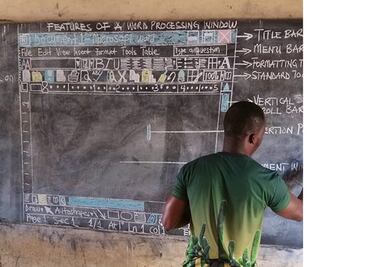 FEATURES OF A WORD PROCESSING WINDOW
TITLE BAR
File Edit View Insert Format Tools Table
Type a question
MENU BAR
FORMATTING T
B I U
A
STANDARD TO
100%
VERTICAL
ROLL BAR
ERTION P
MENT IN
Draw
Autoshapes
Page 1 Sec 1 1/1 At 1" Ln 1